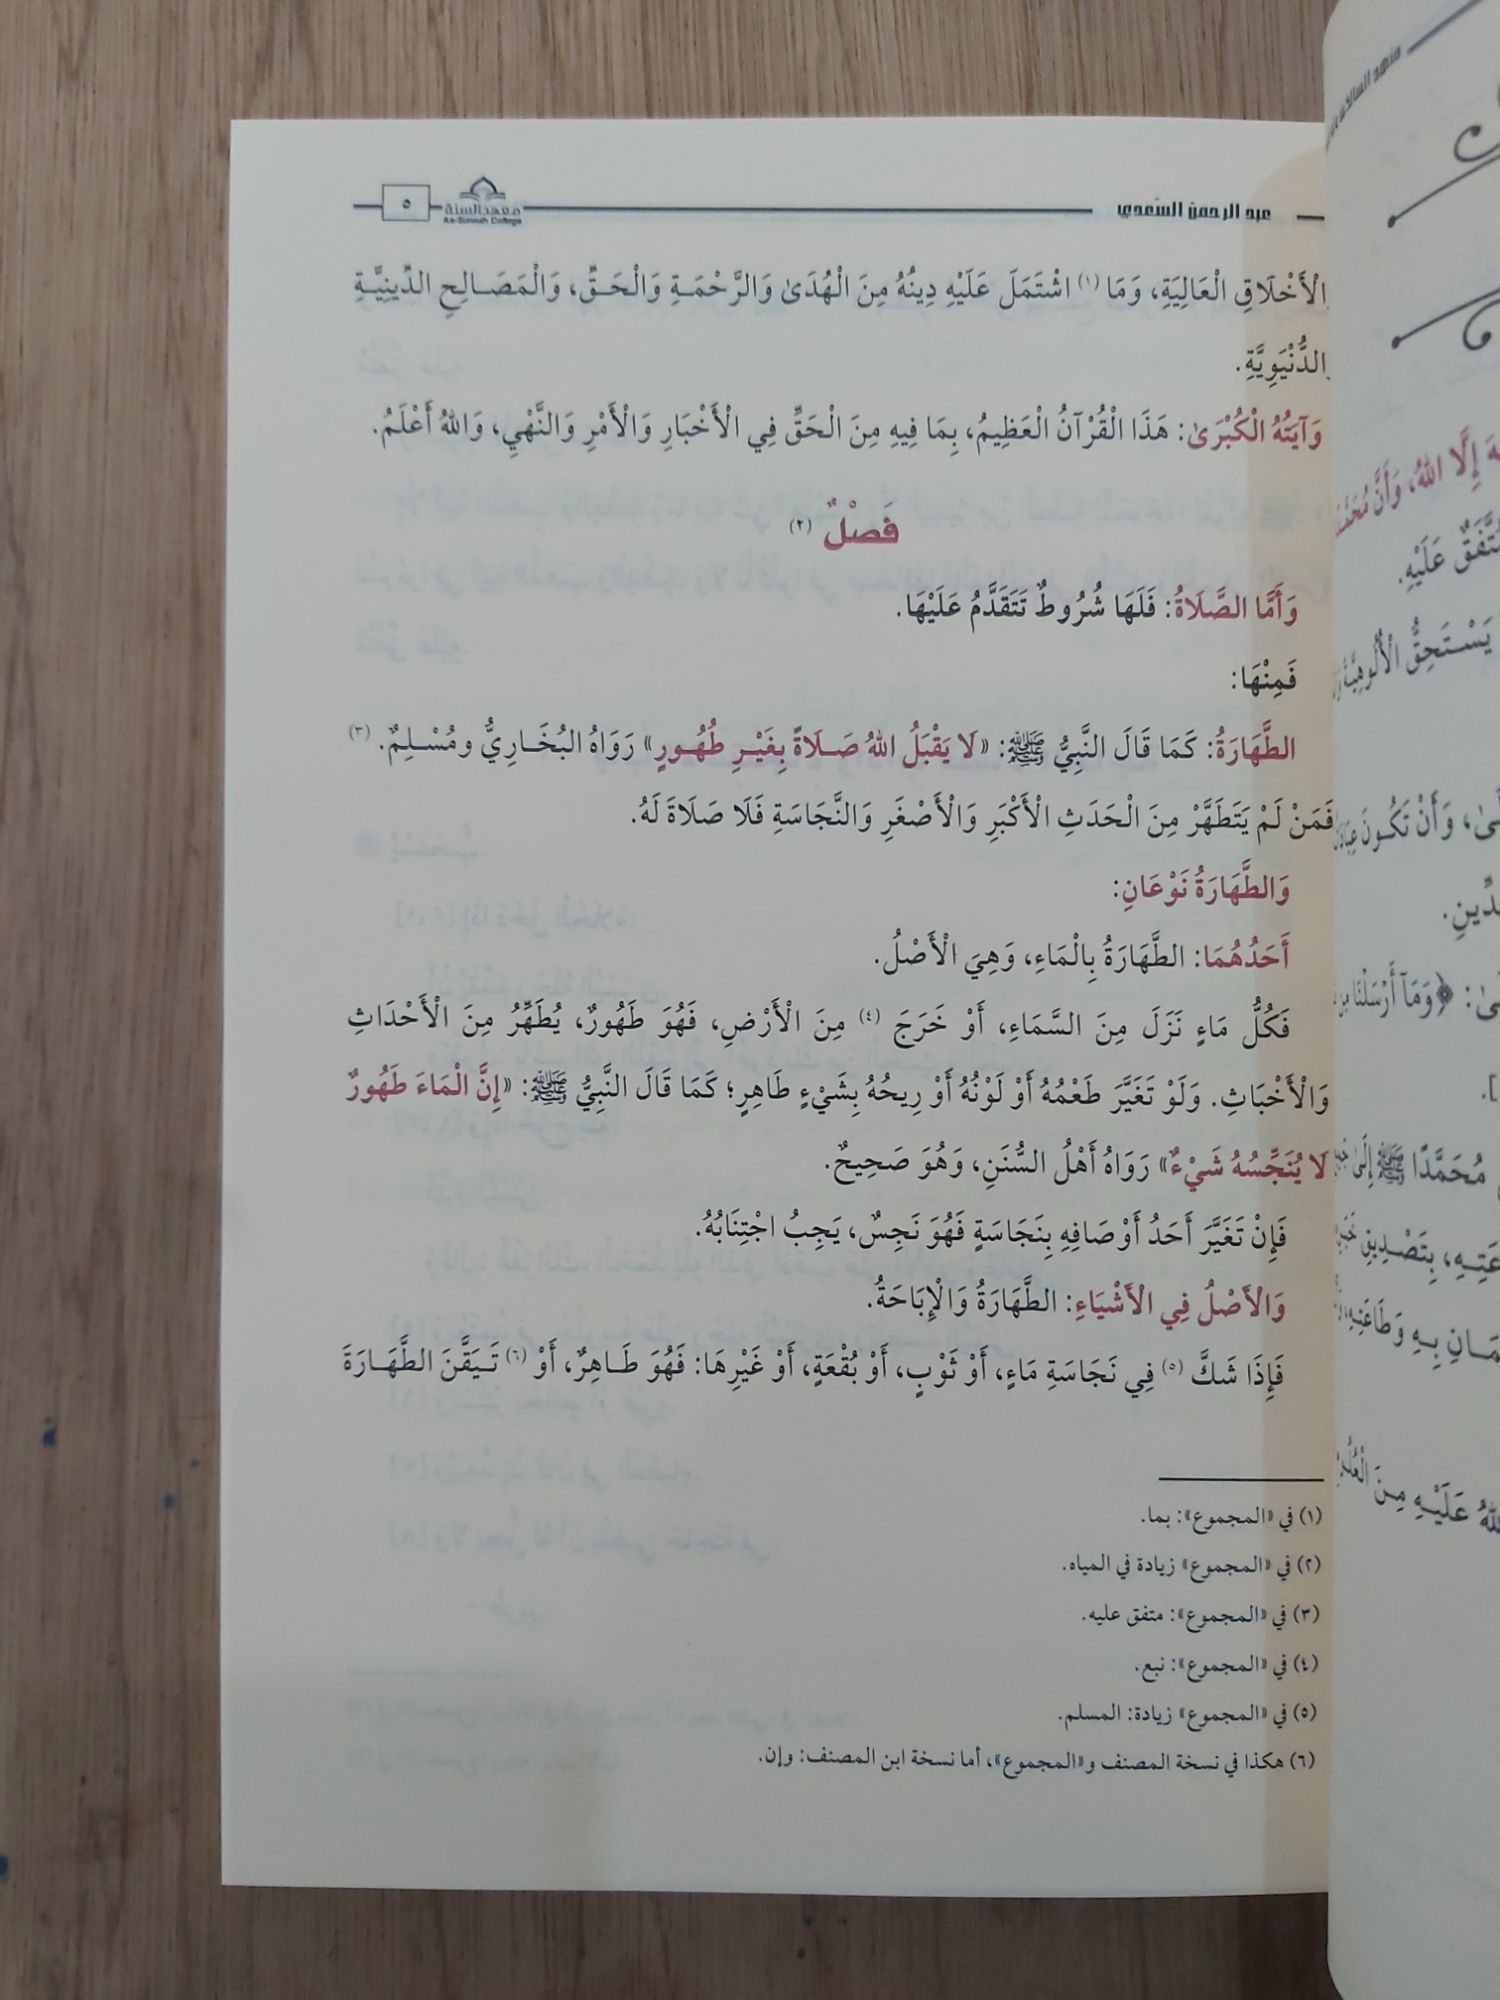 عبد الرحمن السعدي
معهد السنة
As-Sunnah College
٥
الْأَخْلَاقِ الْعَالِيَةِ، وَمَا (١) اشْتَمَلَ عَلَيْهِ دِينُهُ مِنَ الْهُدَىٰ وَالرَّحْمَـةِ وَالْحَـقِّ، وَالْمَصَـالِحِ الدِّينِيَّـةِ
الدُّنْيَوِيَّةِ.
وَآيَتُهُ الْكُبْرَىٰ: هَذَا الْقُرْآنُ الْعَظِيمُ، بِمَا فِيهِ مِنَ الْحَقِّ فِي الْأَخْبَارِ وَالْأَمْرِ وَالنَّهْيِ، وَاللهُ أَعْلَمُ.
فَصْلٌ (٢)
وَأَمَّا الصَّلَاةُ: فَلَهَا شُرُوطٌ تَتَقَدَّمُ عَلَيْهَا.
فَمِنْهَا:
الطَّهَارَةُ: كَمَا قَالَ النَّبِيُّ ﷺ: «لَا يَقْبَلُ اللهُ صَـلَاةً بِغَيْـرِ طُهُـورٍ» رَوَاهُ البُخَـارِيُّ ومُسْـلِمٌ. (٣)
فَمَنْ لَمْ يَتَطَهَّرْ مِنَ الْحَدَثِ الْأَكْبَرِ وَالْأَصْغَرِ وَالنَّجَاسَةِ فَلَا صَلَاةَ لَهُ.
وَالطَّهَارَةُ نَوْعَانِ:
أَحَدُهُمَا: الطَّهَارَةُ بِالْمَاءِ، وَهِيَ الْأَصْلُ.
فَكُلُّ مَاءٍ نَزَلَ مِنَ السَّمَاءِ، أَوْ خَرَجَ (٤) مِنَ الْأَرْضِ، فَهُوَ طَهُورٌ، يُطَهِّرُ مِنَ الْأَحْدَاثِ
وَالْأَخْبَاثِ. وَلَوْ تَغَيَّرَ طَعْمُهُ أَوْ لَوْنُهُ أَوْ رِيحُهُ بِشَيْءٍ طَاهِرٍ؛ كَمَا قَالَ النَّبِيُّ ﷺ: «إِنَّ الْمَاءَ طَهُورٌ
لَا يُنَجِّسُهُ شَيْءٌ» رَوَاهُ أَهْلُ السُّنَنِ، وَهُوَ صَحِيحٌ.
فَإِنْ تَغَيَّرَ أَحَدُ أَوْصَافِهِ بِنَجَاسَةٍ فَهُوَ نَجِسٌ، يَجِبُ اجْتِنَابُهُ.
وَالْأَصْلُ فِي الْأَشْيَاءِ: الطَّهَارَةُ وَالْإِبَاحَةُ.
فَإِذَا شَكَّ (٥) فِي نَجَاسَةِ مَاءٍ، أَوْ ثَوْبٍ، أَوْ بُقْعَةٍ، أَوْ غَيْرِهَا: فَهُوَ طَـاهِرٌ، أَوْ (٦) تَـيَقَّنَ الطَّهَـارَةَ
(١) في «المجموع»: بما.
(٢) في «المجموع» زيادة في المياه.
(٣) في «المجموع»: متفق عليه.
(٤) في «المجموع»: نبع.
(٥) في «المجموع» زيادة: المسلم.
(٦) هكذا في نسخة المصنف و«المجموع»، أما نسخة ابن المصنف: وإن.
إِلَّا اللهُ، وَأَنَّ
عَلَيْهِ.
يَسْـتَحِقُّ الْأُلُوهِيَّةَ
وَأَنْ تَكُـونَ
: ﴿وَمَآ أَرْسَلْنَا مِن
مُحَمَّدًا ﷺ إِلَىٰ
بِتَصْـدِيقِ
بِـهِ وَطَاعَتِهِ
عَلَيْـهِ مِـنَ